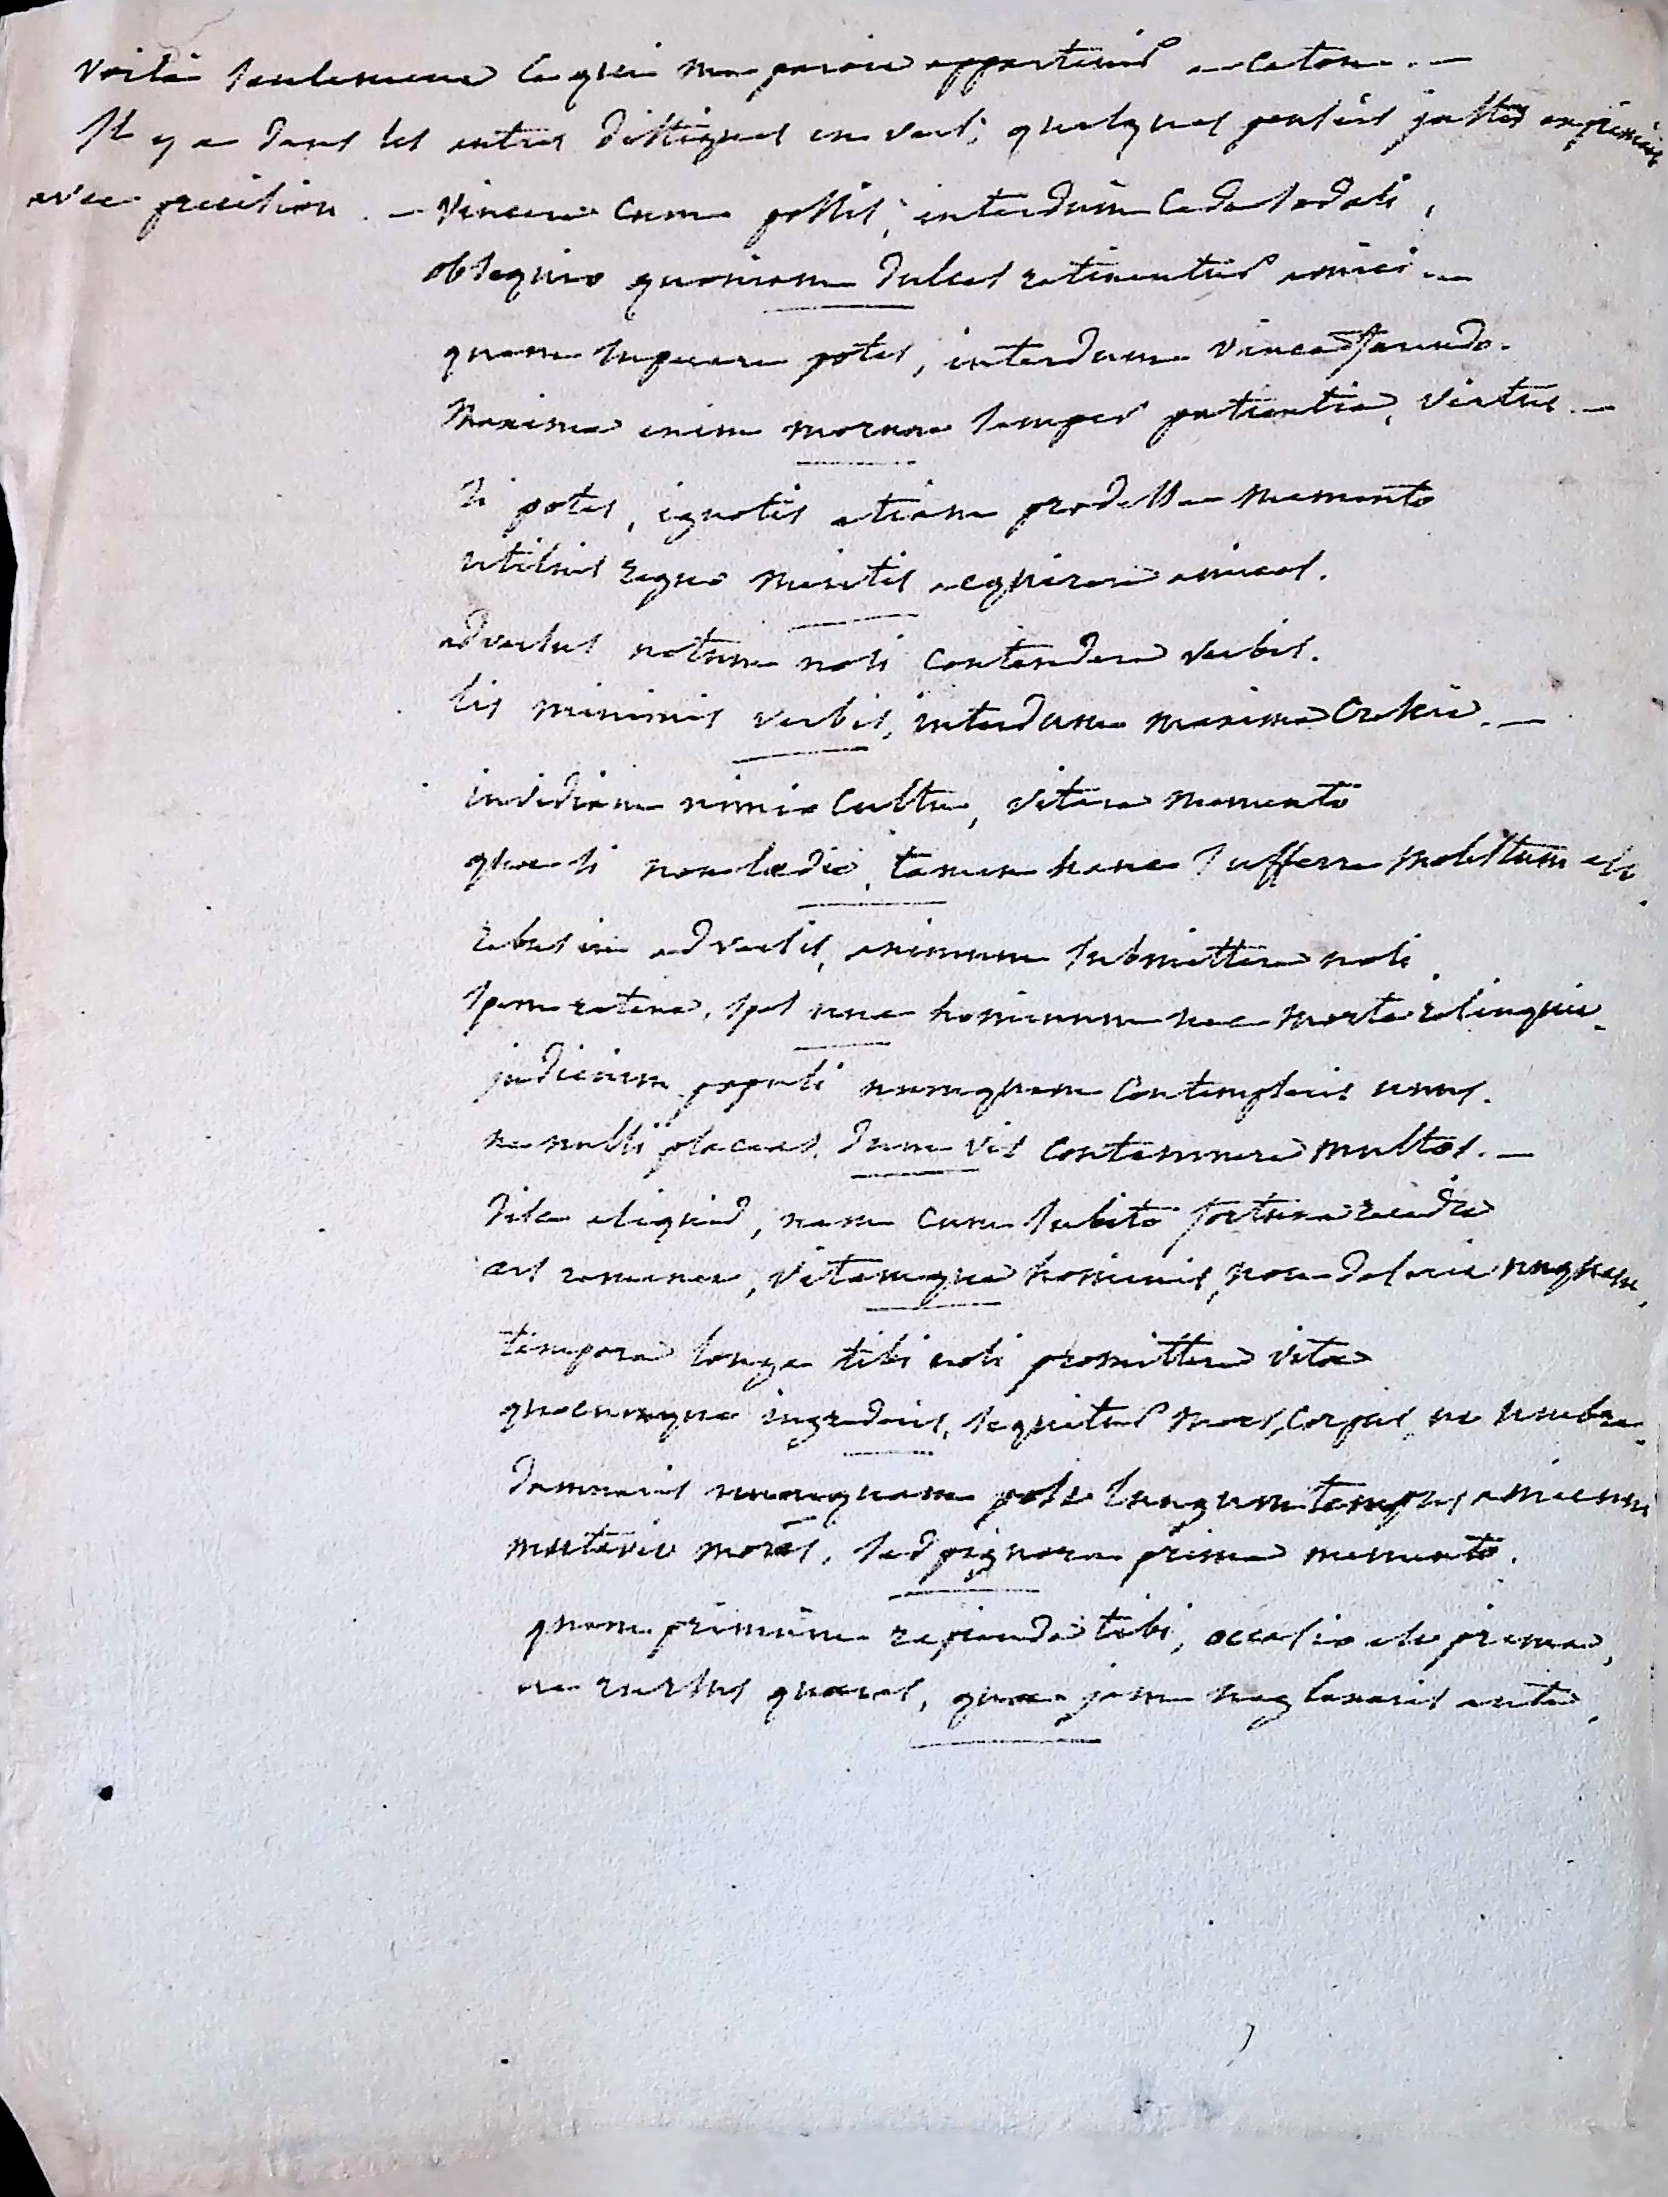 voila seulement ce qui me paroit appartenir a caton. —
Il y a dans les autres distiques en vers, quelques pensées justes exprimées
avec precision. — Vincere cum possis, interdum cede sodali,
obsequio quoniam dulces retinentur amici. —
quem superare potes, interdum vince ferendo.
Maxima enim morum semper patientia, virtus. —
Si potes, ignotis etiam prodesse memento
utilius regno meritis acquirere amicos.
adversus notum noli contendere verbis.
lis minimis verbis, interdum maxima crescit. —
invidiam nimio cultu, vitare memento
quae si non laedit, tamen hanc sufferre molestum est.
rebus in adversis, animum submittere noli.
spem retine, spes una hominem nec morte relinquit.
judicium populi numquam contempseris unus.
ne nulli placeas, dum vis contemnere multos. —
disce aliquid, nam cum subito fortuna recedit
ars remanet, vitamque hominis, non deserit unquam.
tempora longa tibi noli promittere vitae
quocumque ingrederis, sequitur mors, corpus ut umbra.
damnaris numquam post longum tempus amicum
mutavit mores, sed pignora prima memento.
quam primum rapienda tibi, occasio est prima,
ne rursus quaeras, quae jam neglexeris ante.